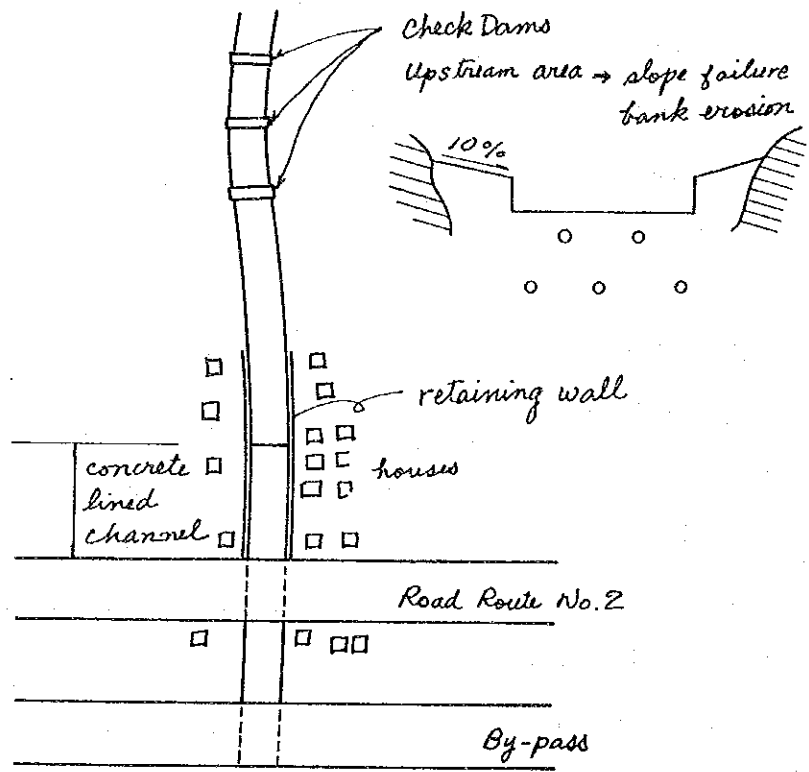 Check Dams
Upstream area → slope failure
bank erosion
10%
retaining wall
concrete
lined
channel
houses
Road Route No.2
By-pass